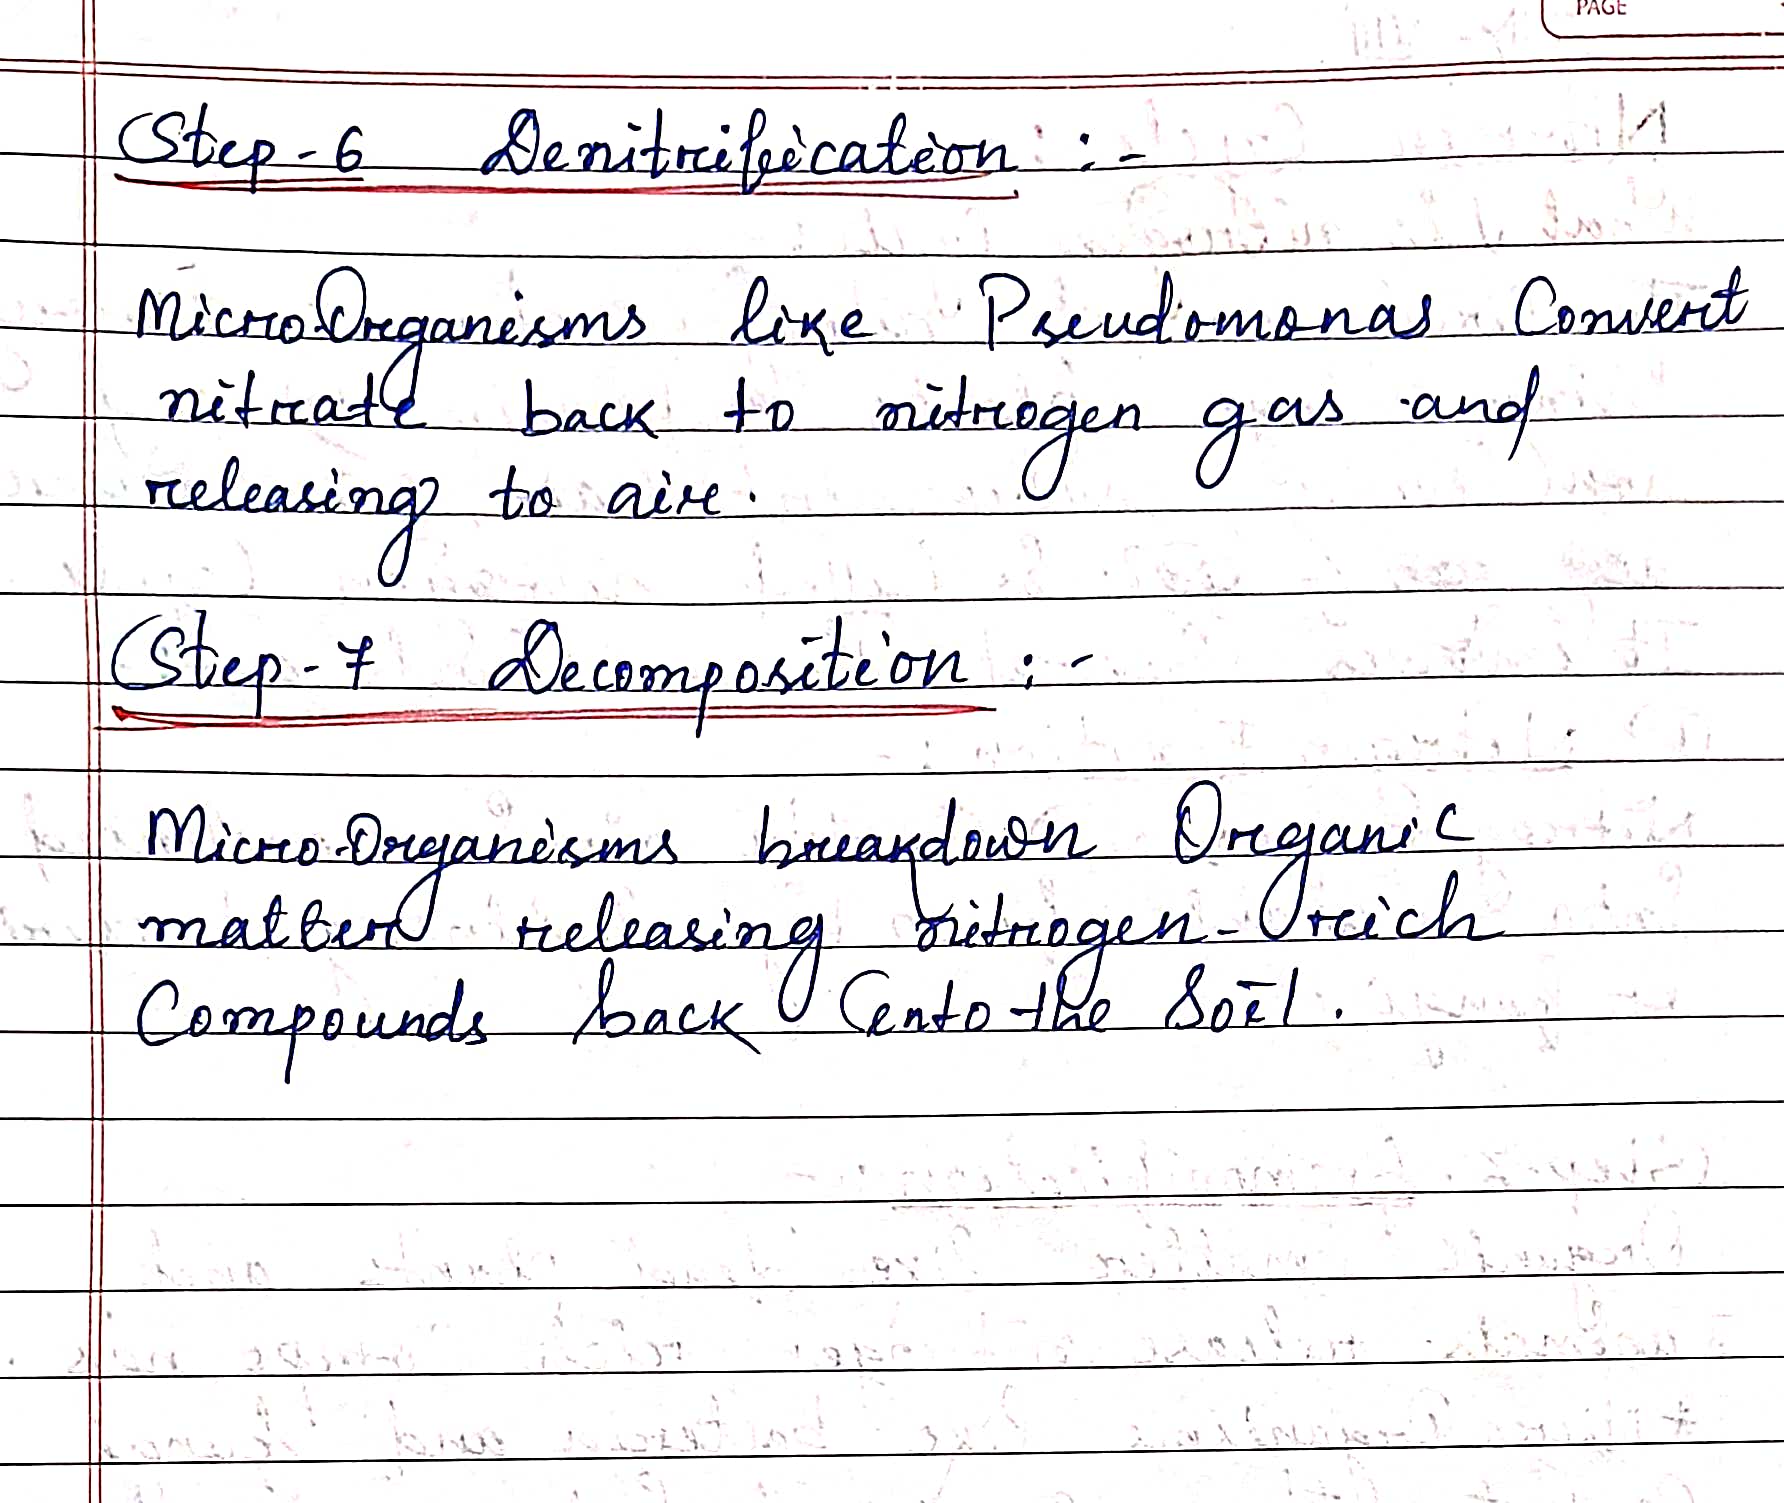 PAGE
Step-6 Denitrification :-
MicroOrganisms like Pseudomonas Convert
nitrate back to nitrogen gas and
releasing to air.
Step-7 Decomposition :-
Micro-Organisms breakdown Organic
matter releasing nitrogen-rich
Compounds back into the Soil.